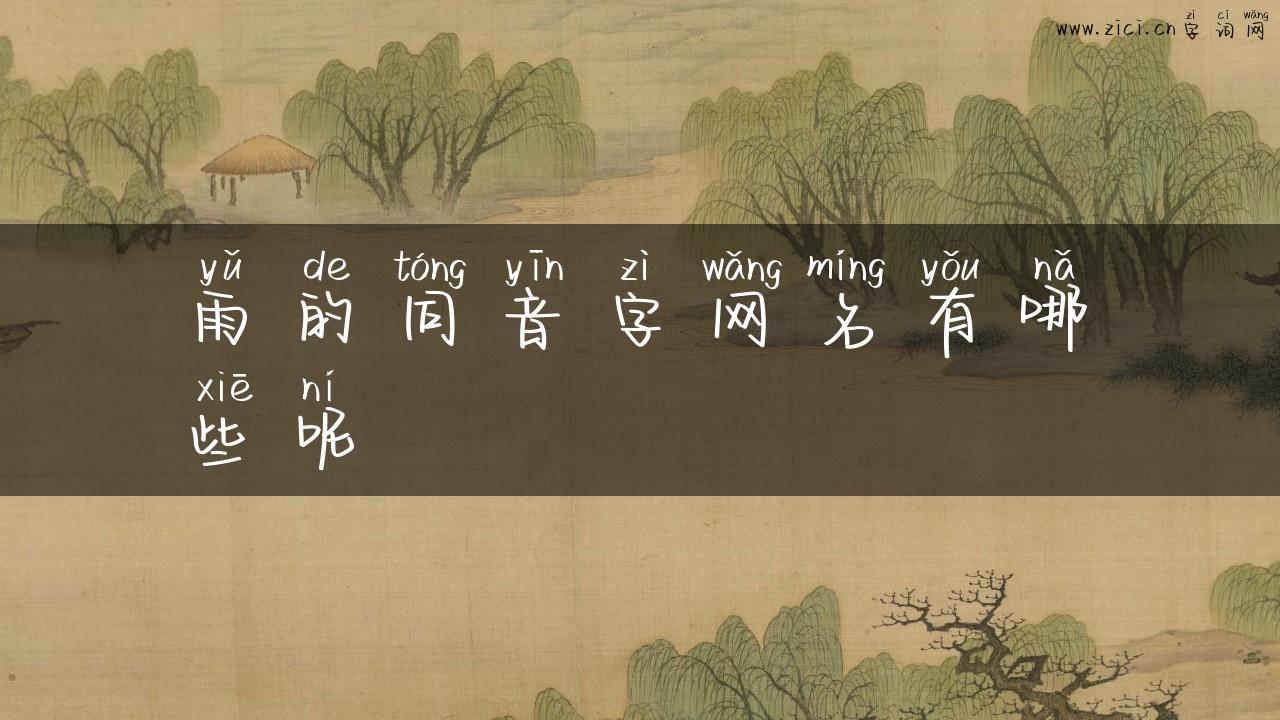 zì cí wǎng
www.zici.cn 字 词 网
yǔ de tóng yīn zì wǎng míng yǒu nǎ
雨 的 同 音 字 网 名 有 哪
xiē ní
些 呢